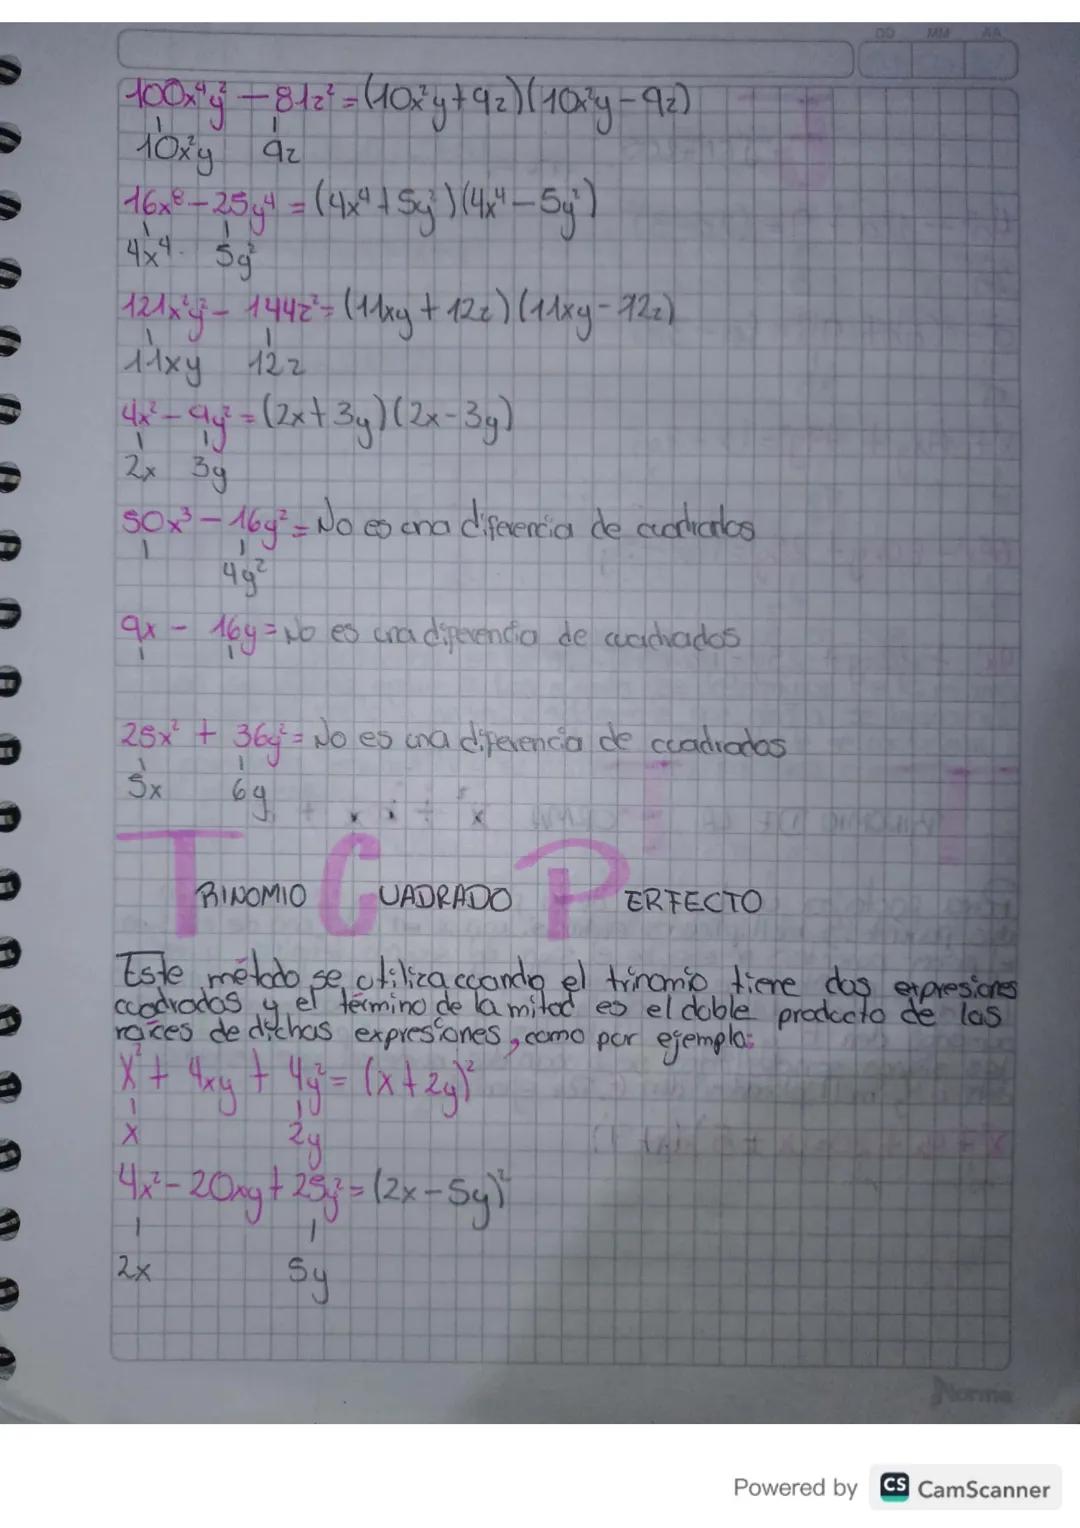 DD MM AA
100x⁴y² - 81z² = (10x²y + 9z)(10x²y - 9z)
10x²y 9z
16x⁸ - 25y⁴ = (4x⁴ + 5y²)(4x⁴ - 5y²)
4x⁴. 5y²
121x²y² - 144z² = (11xy + 12z)(11xy - 12z)
11xy 12z
4x² - 9y² = (2x + 3y)(2x - 3y)
2x 3y
50x³ - 16y² = No es una diferencia de cuadrados
4y²
9x - 16y = No es una diferencia de cuadrados
25x² + 36y² = No es una diferencia de cuadrados
5x 6y
TRINOMIO CUADRADO PERFECTO
Este método se utiliza cuando el trinomio tiene dos expresiones
cuadrados y el término de la mitad es el doble producto de las
raíces de dichas expresiones, como por ejemplo:
x² + 4xy + 4y² = (x + 2y)²
x 2y
4x² - 20xy + 25y² = (2x - 5y)²
2x 5y
Norma
Powered by CS CamScanner